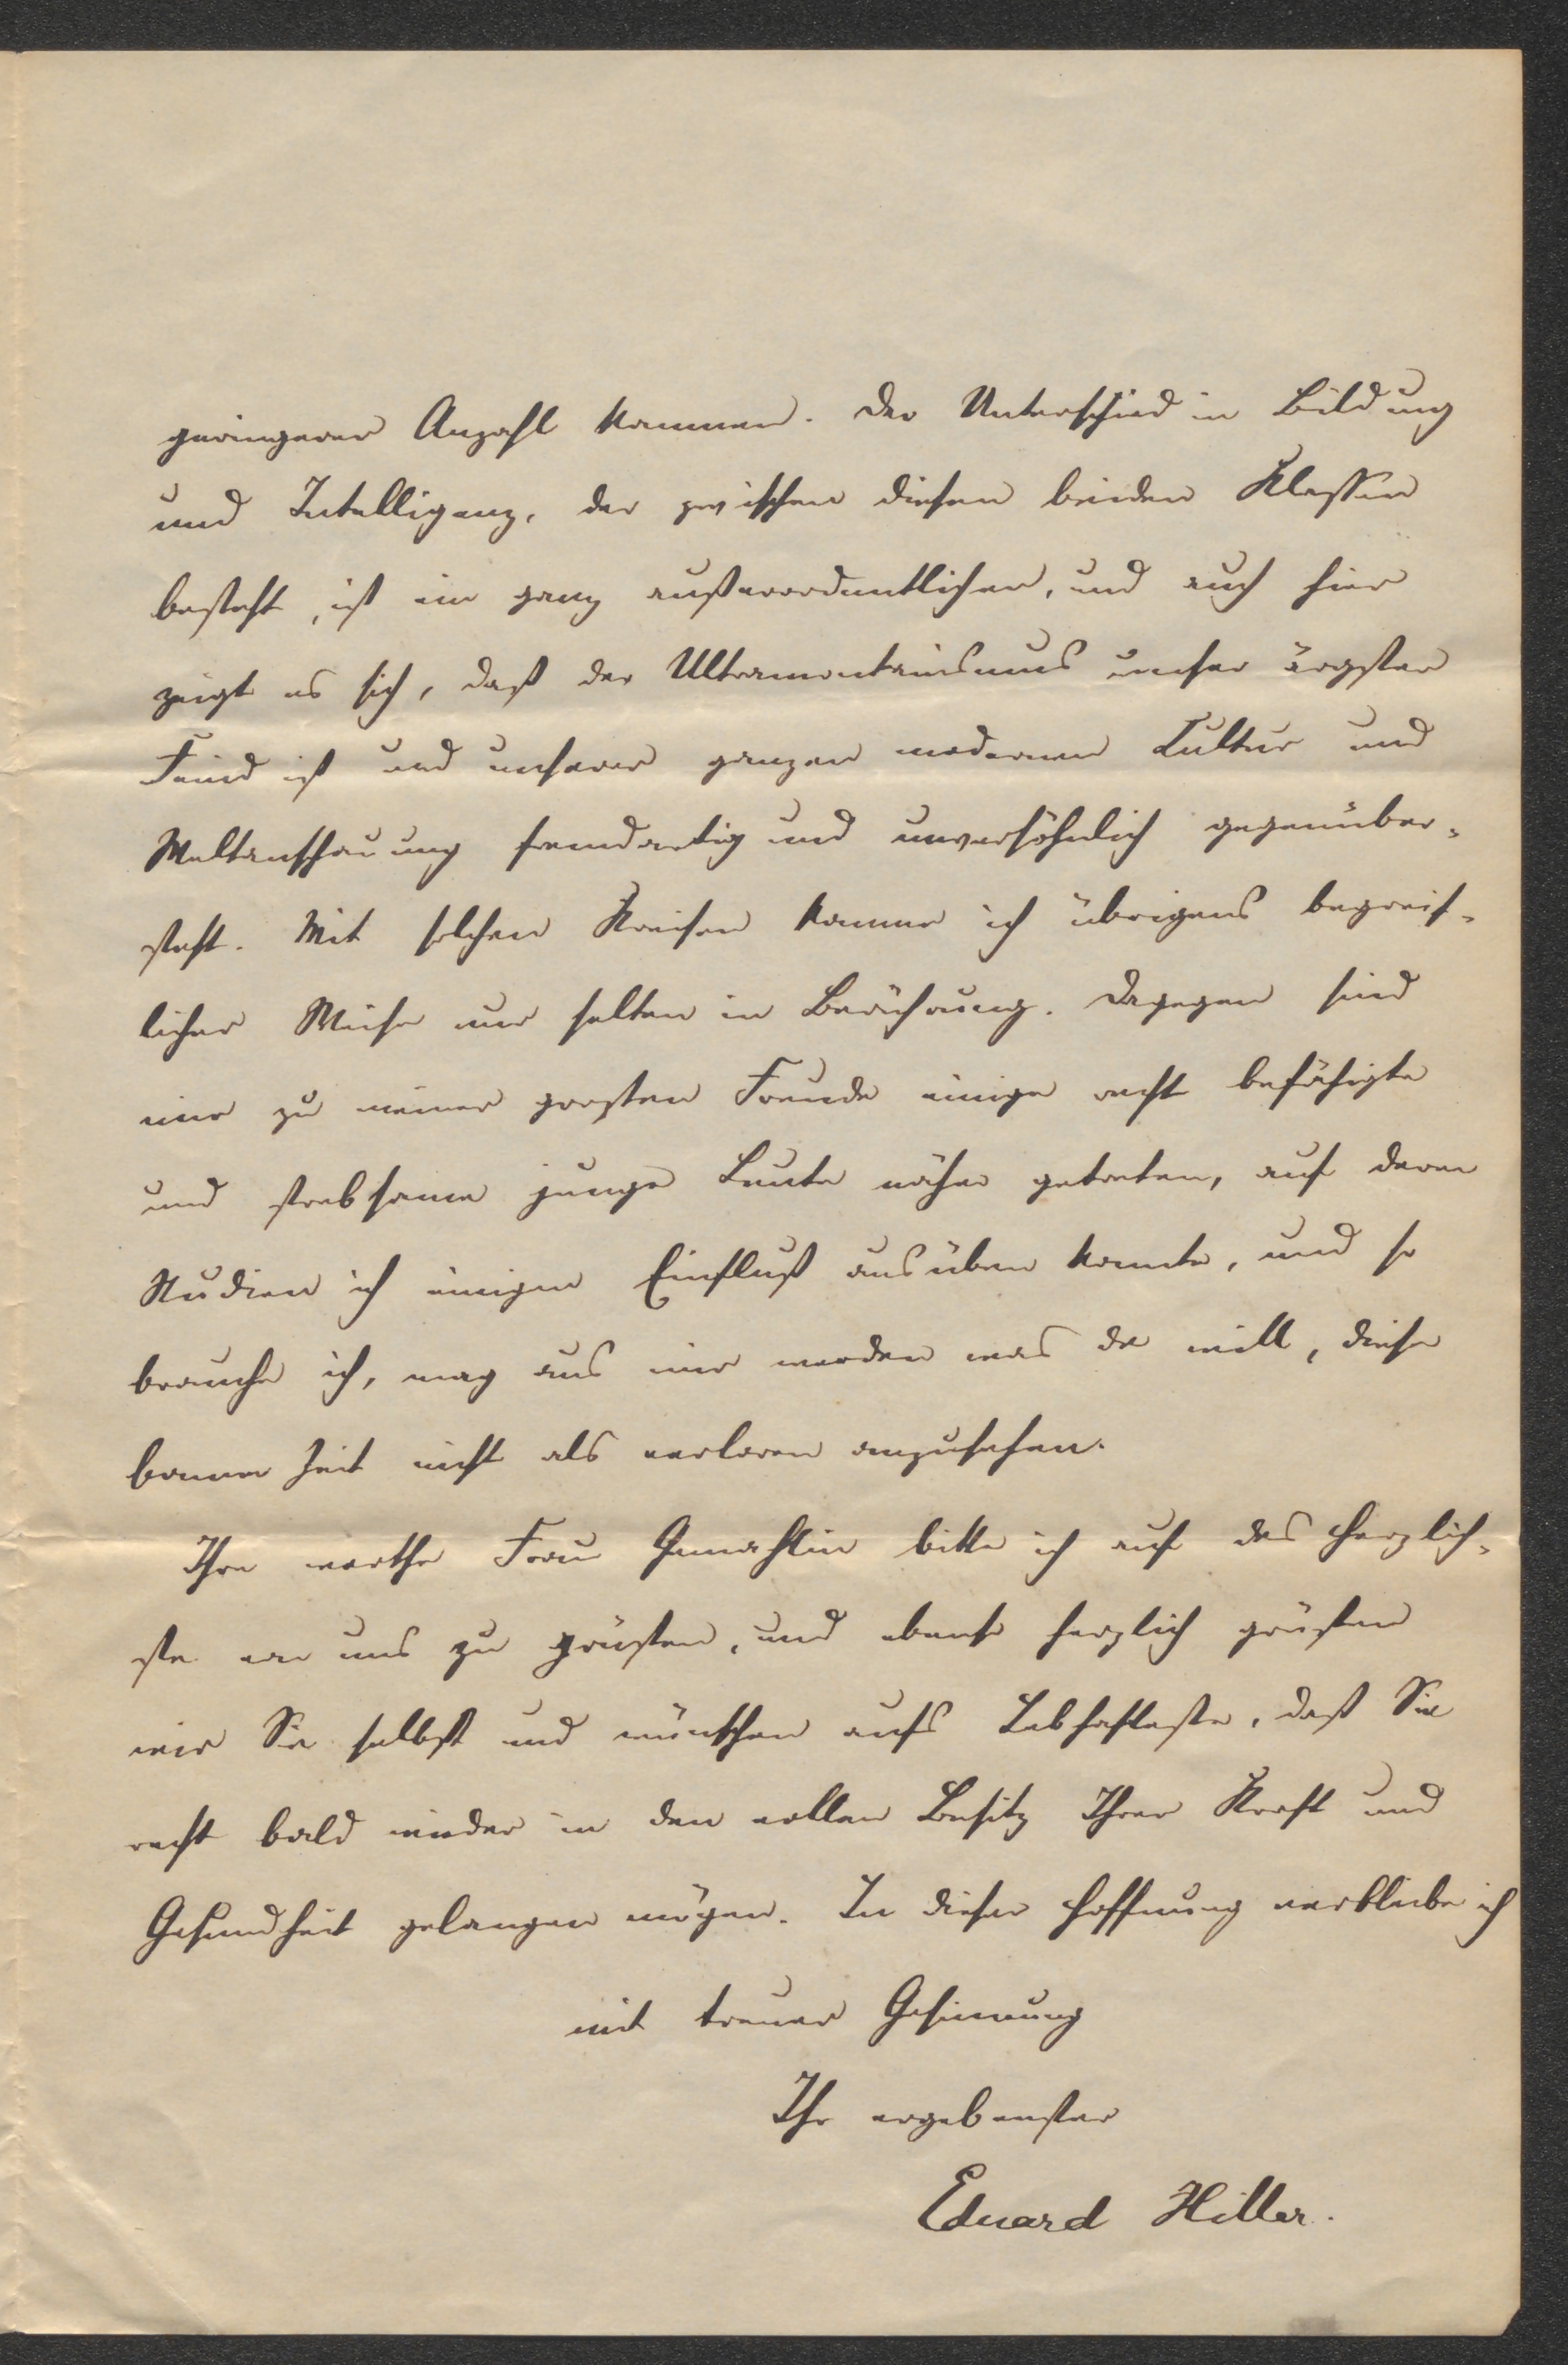 geringerer Anzahl kommen. Der Unterschied in Bildung
und Intelligenz, der zwischen diesen beiden Klassen
besteht, ist ein ganz außerordentlicher, und auch hier
zeigt es sich, daß der Ultramontanismus unser ärgster
Feind ist und unserer ganzen modernen Cultur und
Weltanschauung fremdartig und unversöhnlich gegenüber-
steht. Mit solchen Kreisen komme ich übrigens begreif-
licher Weise nur selten in Berührung. Dagegen sind
mir zu meiner großten Freude einige recht befähigte
und strebsame junge Leute näher getreten, auf deren
Studien ich einigen Einfluß ausüben konnte, und so
brauche ich, mag aus mir werden was da will, diese
Bonner Zeit nicht als verloren anzusehen.
Ihre werthe Frau Gemahlin bitte ich auf das Herzlich-
ste von uns zu grüßen, und ebenso herzlich grüßen
wir Sie selbst und wünschen aufs Lebhafteste, daß Sie
recht bald wieder in den vollen Besitz Ihrer Kraft und
Gesundheit gelangen mögen. In dieser Hoffnung verbleibe ich
mit treuer Gesinnung
Ihr ergebenster
Eduard Hiller.